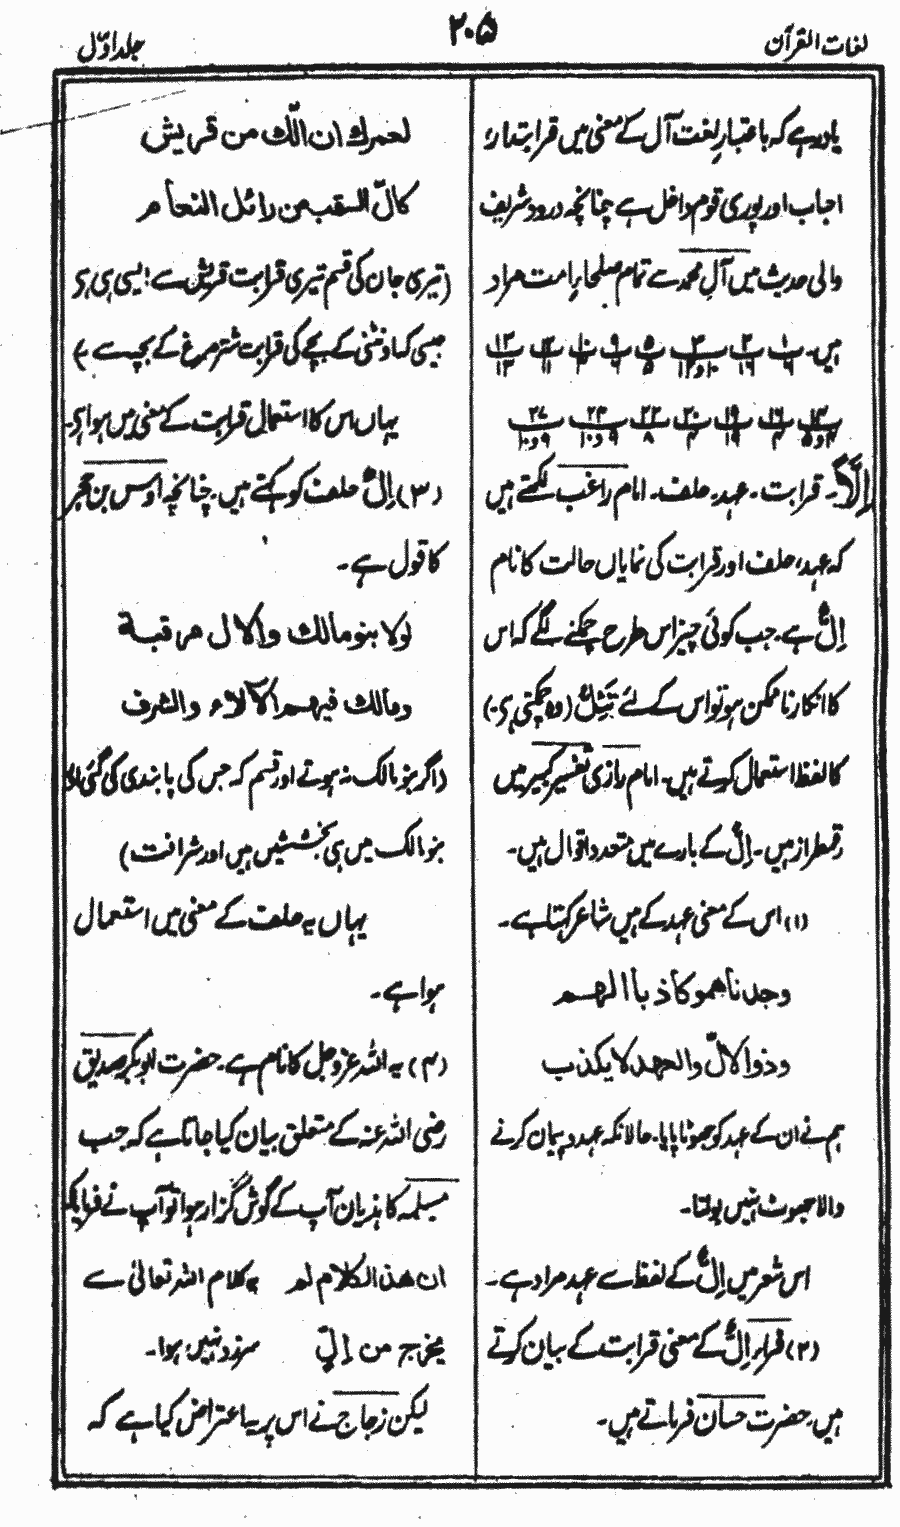 لغات القرآن
۲۰۵
جلد اوّل
یاد رہے کہ باعتبارِ لغت آل کے معنی میں قرابتدار،
احباب اور پوری قوم داخل ہے چنانچہ درود شریف
والی حدیث میں آلِ محمد سے تمام صلحارِ امت مراد
ہیں۔
اِلًّا۔ قرابت۔ عہد۔ حلف۔ امام راغب لکھتے ہیں
کہ عہد، حلف اور قرابت کی نمایاں حالت کا نام
اِلٌّ ہے۔ جب کوئی چیز اس طرح چمکنے لگے کہ اس
کا انکار ناممکن ہو تو اس کے لئے تَئِلُّ (وہ چمکتی ہے)
کا لفظ استعمال کرتے ہیں۔ امام رازی تفسیر کبیر میں
رقمطراز ہیں۔ اِلٌّ کے بارے میں متعدد اقوال ہیں۔
(۱) اس کے معنی عہد کے ہیں شاعر کہتا ہے۔
وجدناهمو کاذبا الهم
وذو الالّ والعهد لا یکذب
ہم نے ان کے عہد کو جھوٹا پایا۔ حالانکہ عہد و پیمان کرنے
والا جھوٹ نہیں بولتا۔
اس شعر میں اِلٌّ کے لفظ سے عہد مراد ہے۔
(۲) فراء، اِلٌّ کے معنی قرابت کے بیان کرتے
ہیں۔ حضرت حسان فرماتے ہیں۔
لعمرك ان الّك من قریش
کالّ السقب من رائل النعام
(تیری جان کی قسم تیری قرابت قریش سے ایسی ہی ہے
جیسی کہ اونٹنی کے بچے کی قرابت شتر مرغ کے بچہ سے ہے)
یہاں اس کا استعمال قرابت کے معنی میں ہوا ہے۔
(۳) اِلٌّ حلف کو کہتے ہیں۔ چنانچہ اوس بن حجر
کا قول ہے۔
لولا بنو مالك والال مرقبة
ومالك فیهم الآلاء والشرف
(اگر بنو مالک نہ ہوتے اور قسم کہ جس کی پابندی کی گئی اور
بنو مالک میں ہی بخششیں ہیں اور شرافت)
یہاں یہ حلف کے معنی میں استعمال
ہوا ہے۔
(۴) یہ اللہ عزوجل کا نام ہے۔ حضرت ابوبکر صدیق
رضی اللہ عنہ کے متعلق بیان کیا جاتا ہے کہ جب
مسیلمہ کا ہذیان آپ کے گوش گزار ہوا تو آپ نے فرمایا کہ
ان هذا الکلام لم یہ کلام اللہ تعالیٰ سے
یخرج من اِلٍّ سرزد نہیں ہوا۔
لیکن زجاج نے اس پر یہ اعتراض کیا ہے کہ